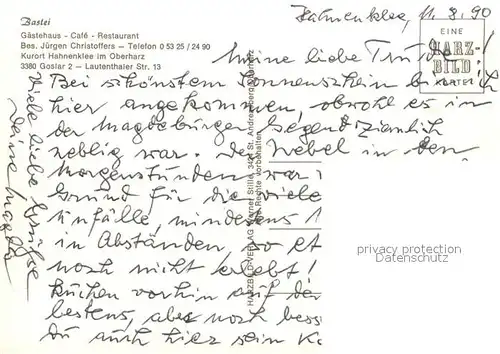 Bastei
Gästehaus - Café - Restaurant
Bes. Jürgen Christoffers — Telefon 0 53 25 / 24 90
Kurort Hahnenklee im Oberharz
3380 Goslar 2 — Lautenthaler Str. 13
Hahnenklee, 11. 8. 90
EINE
HARZ-
BILD
KARTE
Meine liebe Trude!
Bei schönstem Sonnenschein bin ich
hier angekommen, obwohl es in
der Magdeburger Gegend ziemlich
neblig war. Der Nebel in den
Morgenstunden war
Grund für die viele
Unfälle, mindestens 1
in Abständen, so et
noch nicht erlebt!
Kuchen vorhin auf der
bestens, aber noch bess
du auch hier sein Kö
Viele liebe Grüße
Deine Magda
HARZBILD-VERLAG Werner Stille, 3424 St. Andreasberg
Rechte vorbehalten
privacy protection
Datenschutz